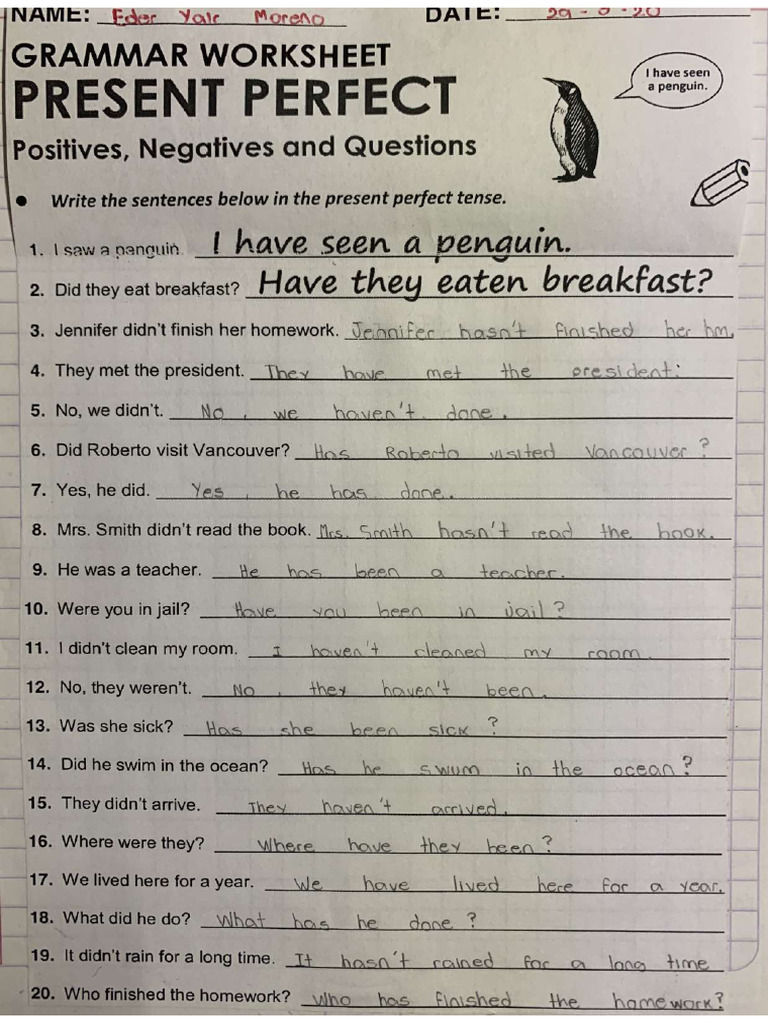 NAME: Eder Yair Moreno DATE: 29 - 9 - 20
GRAMMAR WORKSHEET
PRESENT PERFECT
I have seen
a penguin.
Positives, Negatives and Questions
• Write the sentences below in the present perfect tense.
1. I saw a penguin. I have seen a penguin.
2. Did they eat breakfast? Have they eaten breakfast?
3. Jennifer didn't finish her homework. Jennifer hasn't finished her hm.
4. They met the president. They have met the president.
5. No, we didn't. No, we haven't done.
6. Did Roberto visit Vancouver? Has Roberto visited Vancouver?
7. Yes, he did. Yes, he has done.
8. Mrs. Smith didn't read the book. Mrs. Smith hasn't read the book.
9. He was a teacher. He has been a teacher.
10. Were you in jail? Have you been in jail?
11. I didn't clean my room. I haven't cleaned my room.
12. No, they weren't. No, they haven't been.
13. Was she sick? Has she been sick?
14. Did he swim in the ocean? Has he swum in the ocean?
15. They didn't arrive. They haven't arrived.
16. Where were they? Where have they been?
17. We lived here for a year. We have lived here for a year.
18. What did he do? What has he done?
19. It didn't rain for a long time. It hasn't rained for a long time
20. Who finished the homework? Who has finished the homework?